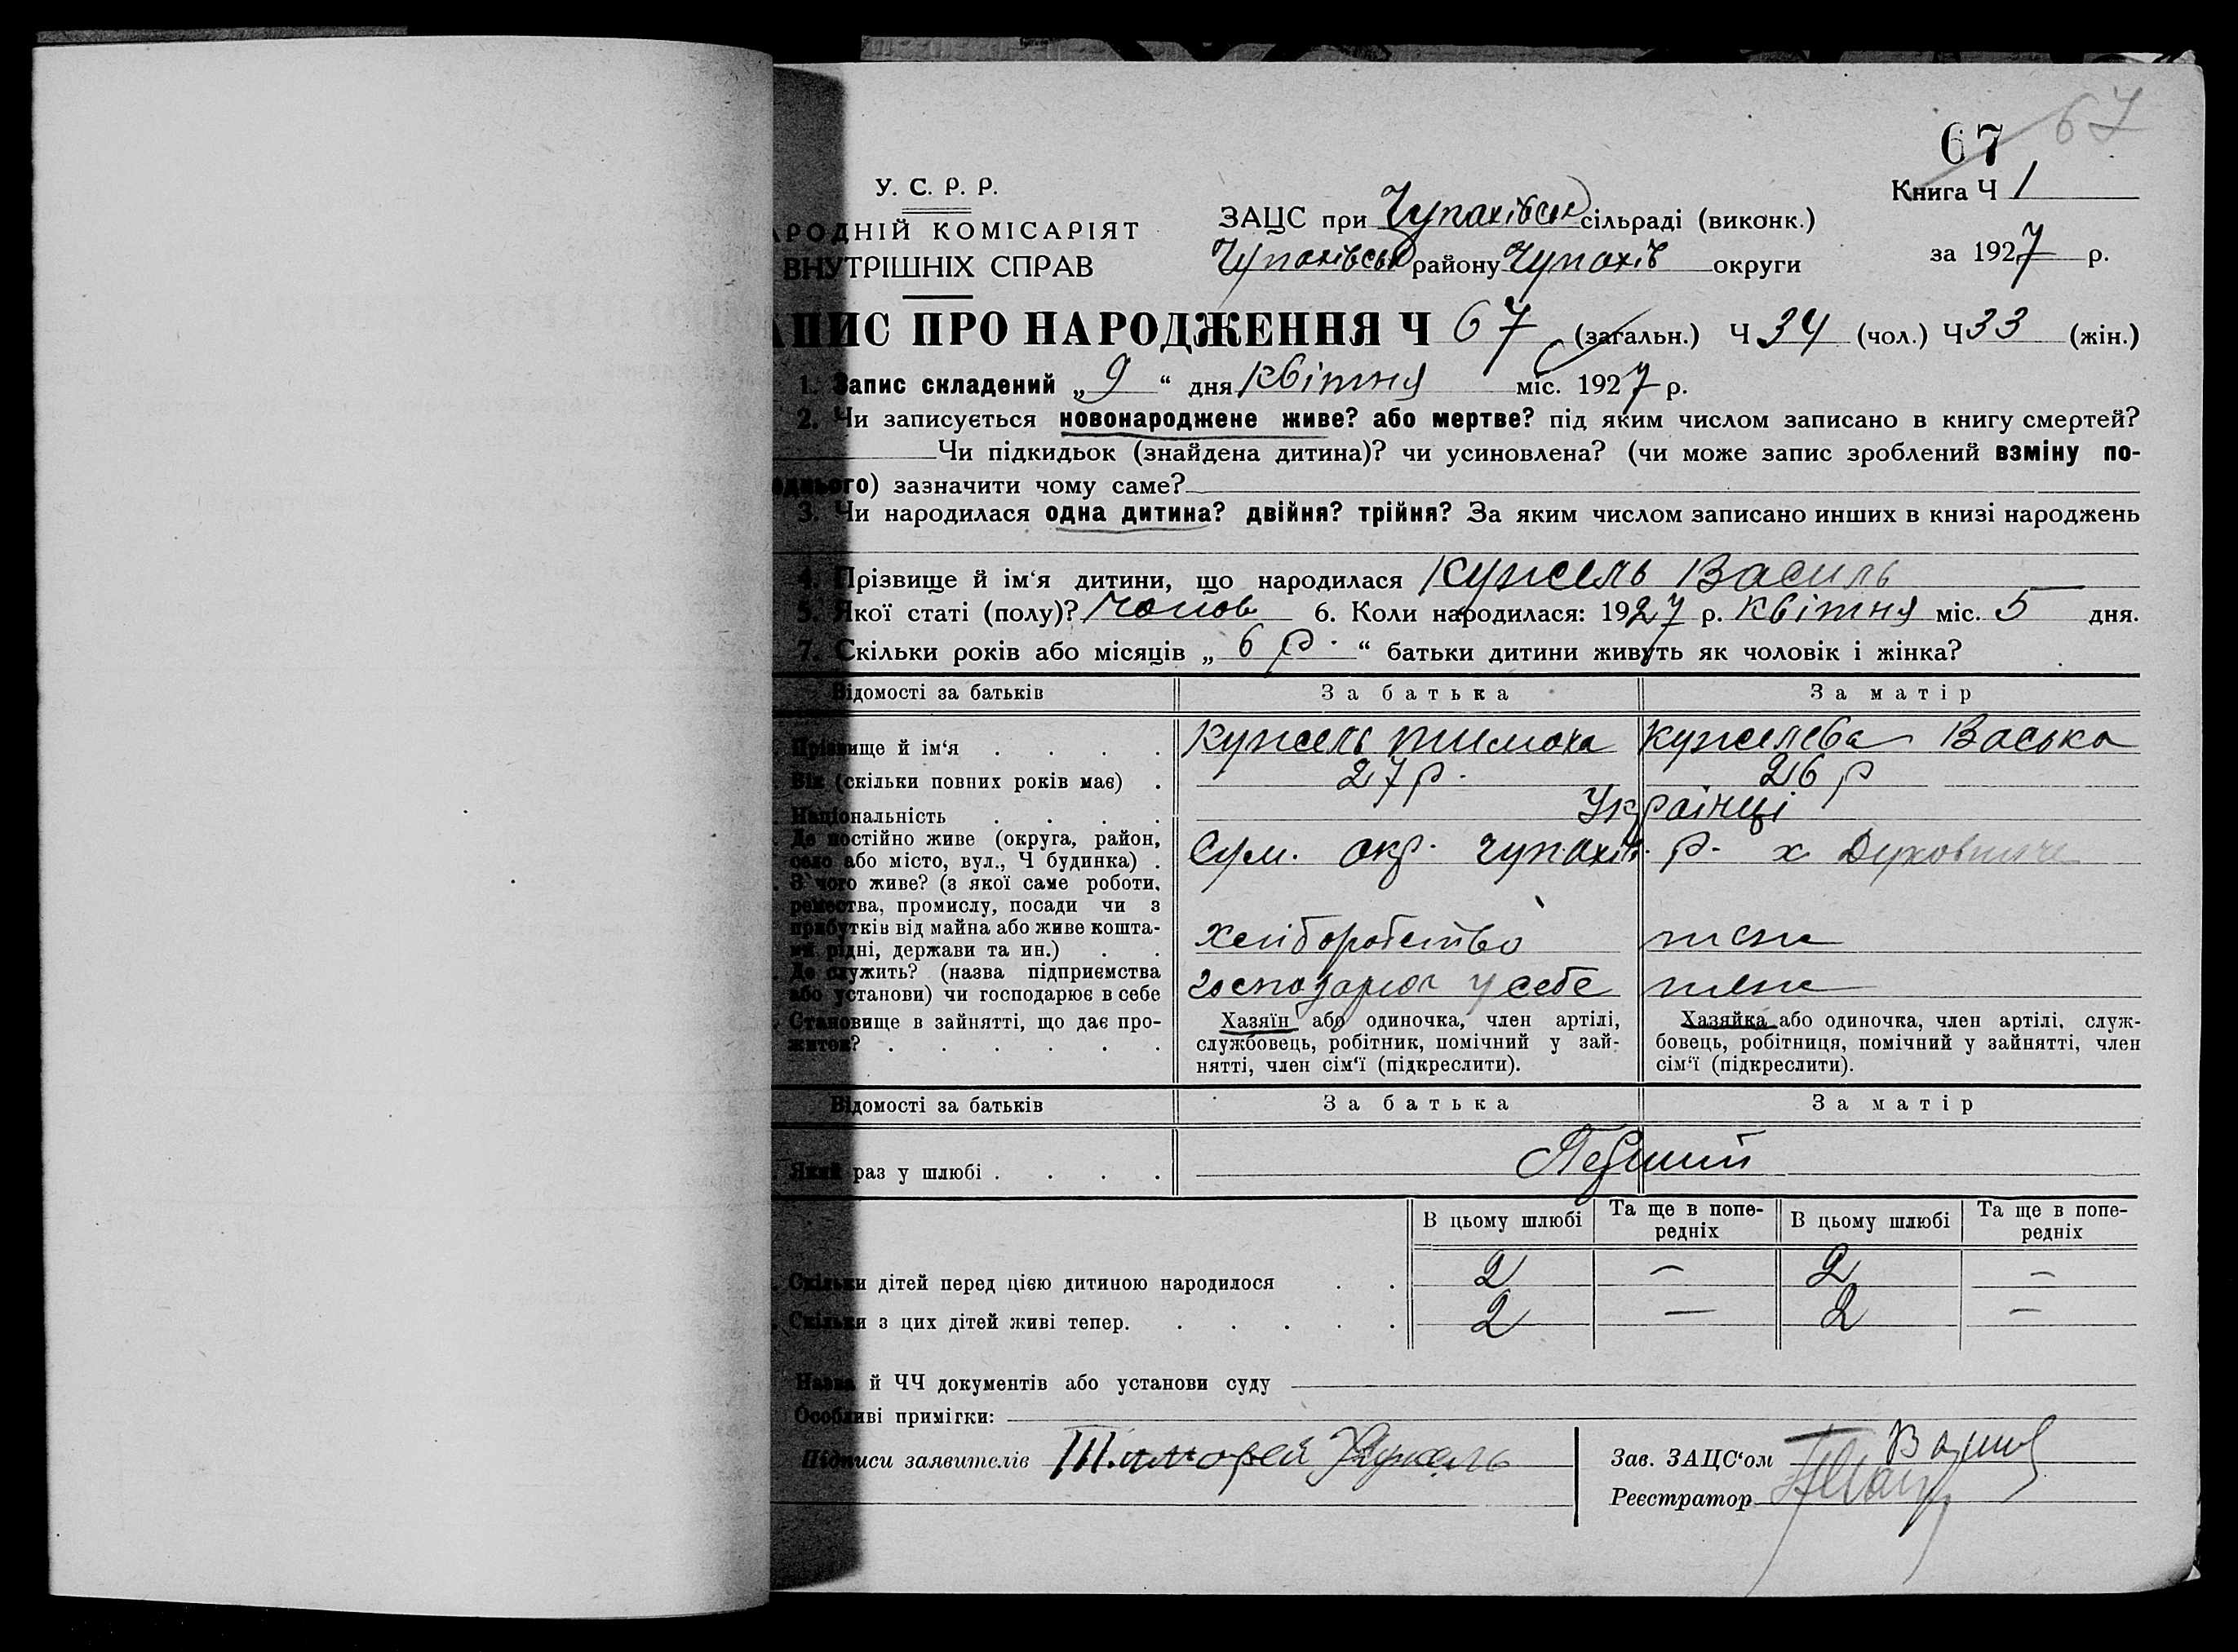 67 67
Книга Ч 1
У. С. Р. Р.
РОДНІЙ КОМІСАРІЯТ
ВНУТРІШНІХ СПРАВ
ЗАЦС при Чупахівськ сільраді (виконк.)
Чупахівськ району Чупахів округи
за 1927 р.
АПИС ПРО НАРОДЖЕННЯ Ч 67 (загальн.) Ч 34 (чол.) Ч 33 (жін.)
1. Запис складений „ 9 “ дня Квітня міс. 1927 р.
2. Чи записується новонароджене живе? або мертве? під яким числом записано в книгу смертей?
Чи підкидьок (знайдена дитина)? чи усиновлена? (чи може запис зроблений взміну по-
однього) зазначити чому саме?
3. Чи народилася одна дитина? двійня? трійня? За яким числом записано инших в книзі народжень
4. Прізвище й ім‘я дитини, що народилася Кужель Василь
5. Якої статі (полу)? Чолов 6. Коли народилася: 1927 р. Квітня міс. 5 дня.
7. Скільки років або місяців „ 6 р. “ батьки дитини живуть як чоловік і жінка?
Відомості за батьків За батька За матір
Прізвище й ім‘я . . . . Кужель Тимоха Кужелева Васька
Вік (скільки повних років має) . 27 р. 26 р
Національність . . . . Українці
Де постійно живе (округа, район,
село або місто, вул., Ч будинка) . Сум. окр. Чупахів. р. х
З чого живе? (з якої саме роботи,
ремества, промислу, посади чи з
прибутків від майна або живе кошта-
ми рідні, держави та ин.) . . Хліборобство теж
Де служить? (назва підприємства
або установи) чи господарює в себе господарює у себе теж
Становище в зайнятті, що дає про-
житок? . . . . . .
Хазяїн або одиночка, член артілі,
службовець, робітник, помічний у зай-
нятті, член сім‘ї (підкреслити).
Хазяйка або одиночка, член артілі, служ-
бовець, робітниця, помічний у зайнятті, член
сім‘ї (підкреслити).
Відомості за батьків За батька За матір
Який раз у шлюбі . . . . Перший
В цьому шлюбі Та ще в попе-
редніх В цьому шлюбі Та ще в попе-
редніх
Скільки дітей перед цією дитиною народилося . . 2 — 2 —
Скільки з цих дітей живі тепер. . . . . . 2 — 2 —
Назва й ЧЧ документів або установи суду
Особливі примітки:
Підписи заявителів Тимофей Кужель
Зав. ЗАЦС‘ом
Реєстратор